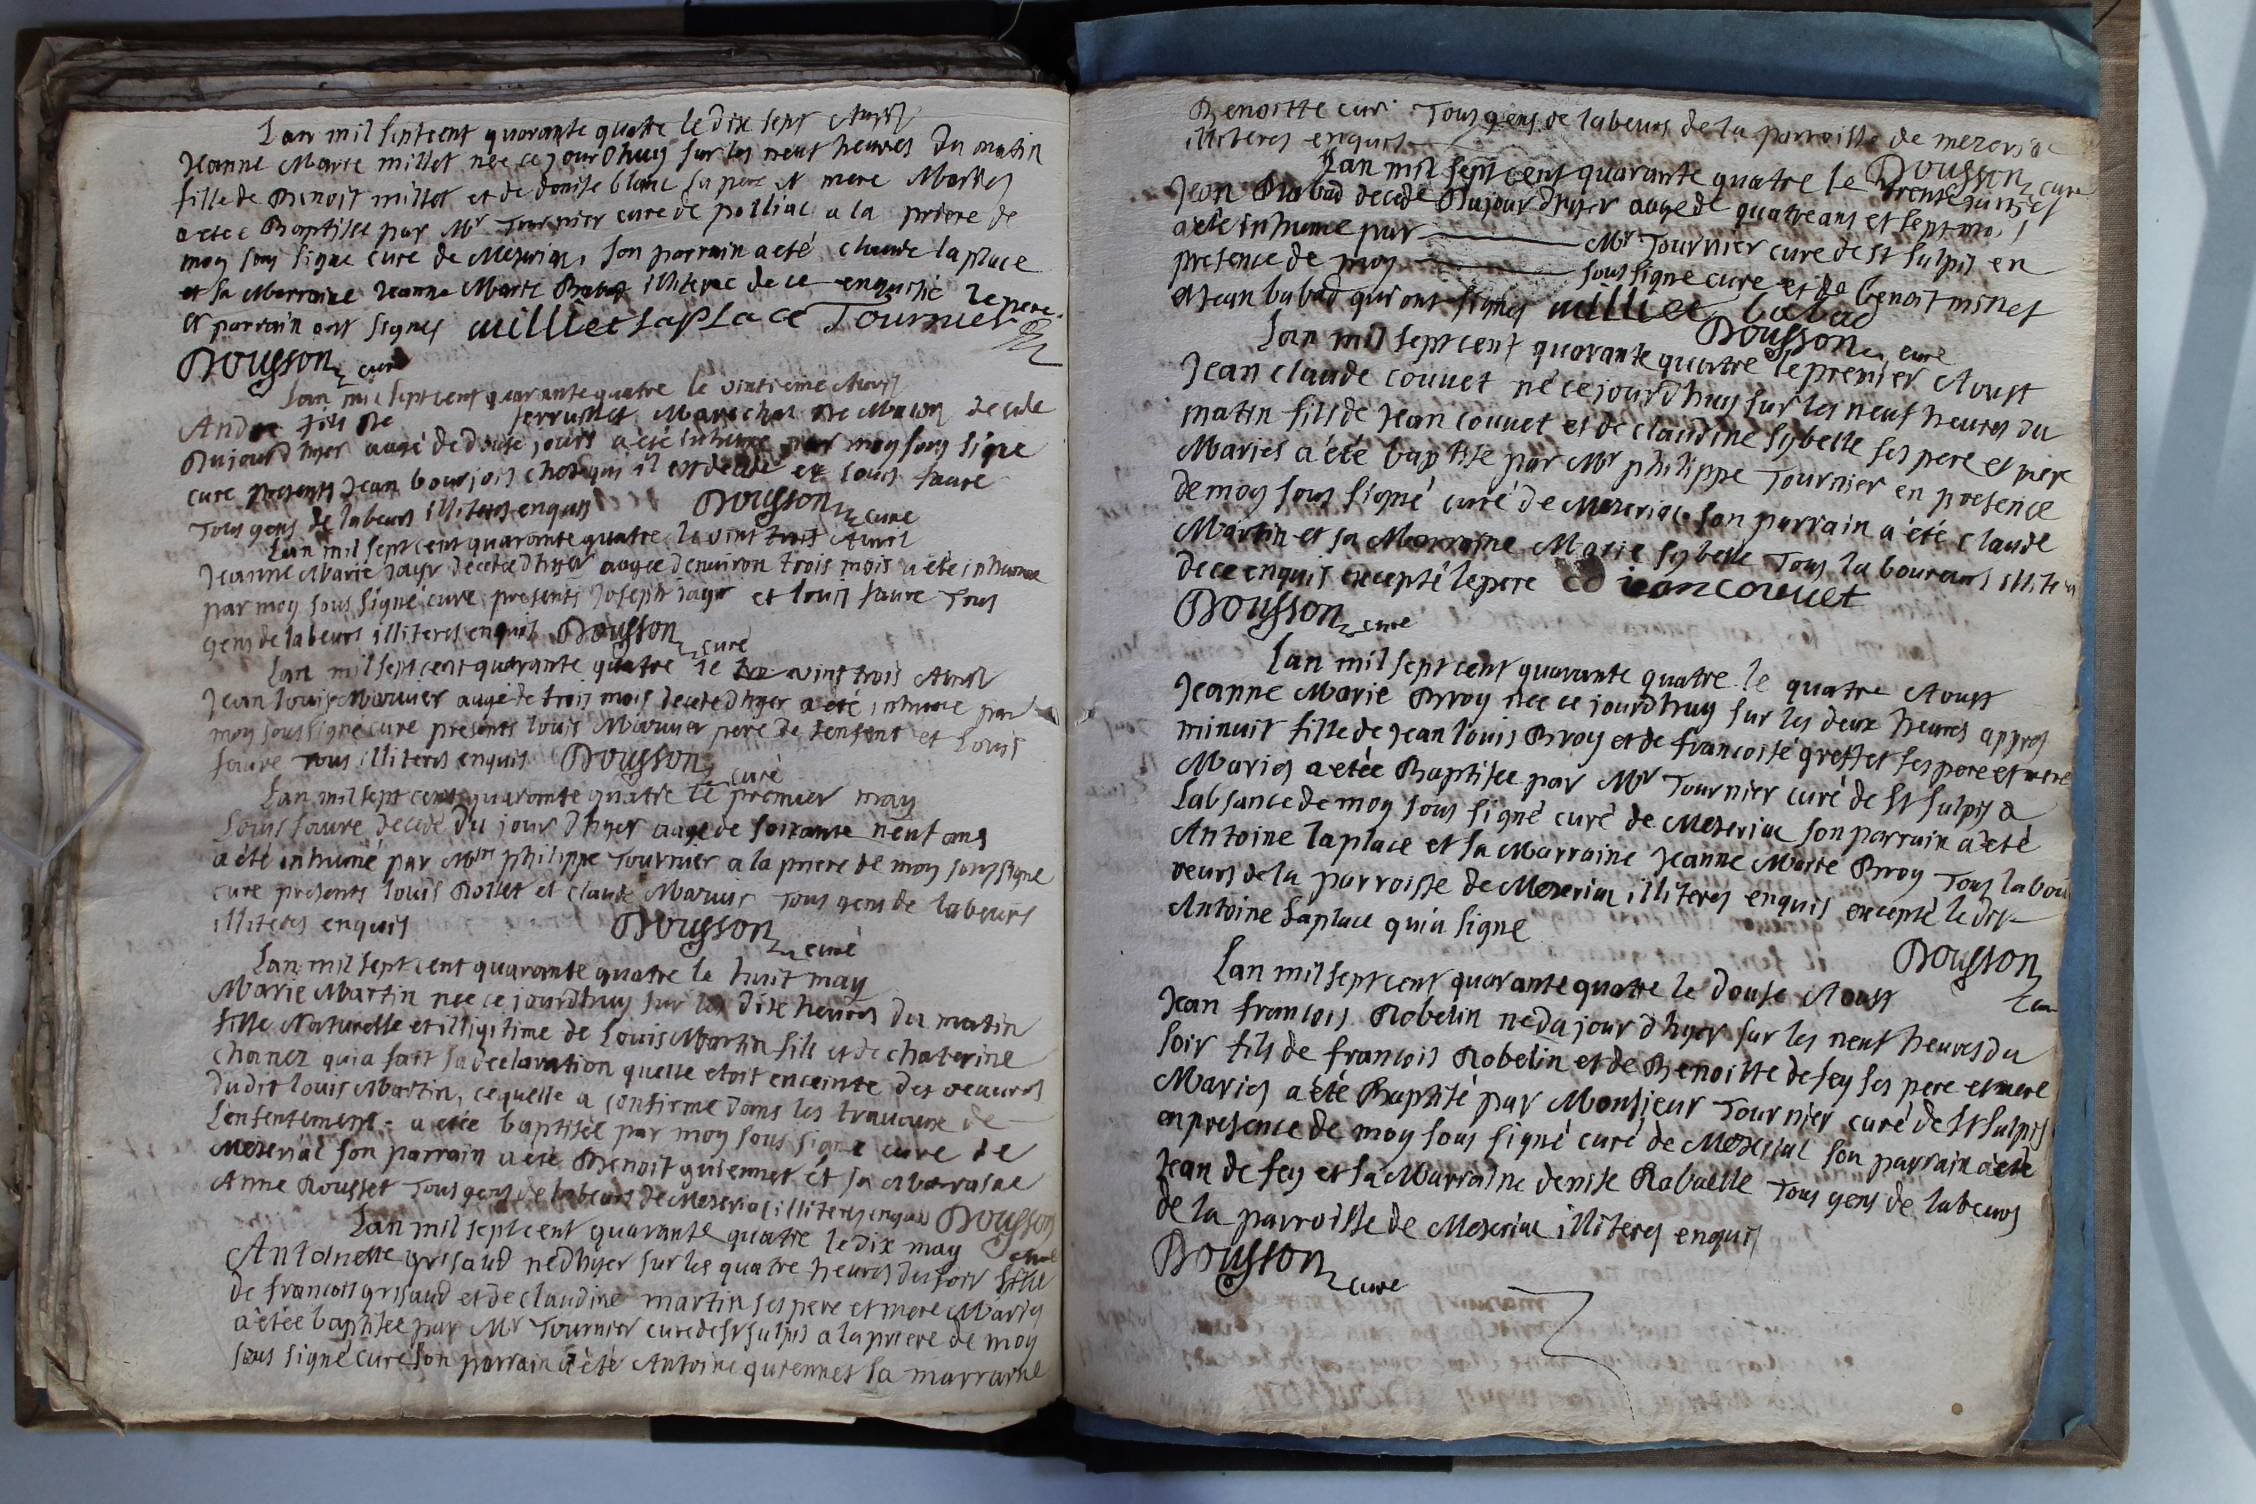 Lan mil septcent quarante quatre le dix sept Avril
Jeanne Marie millet née ce jourdhuy sur les neuf heures du matin
fille de Benoit millet et de denise blanc sa pere et mere Mariés
a eteé Baptisee par Mr Tournier curé de polliac a la priere de
moy sous signé curé de Meseriac, son parrain a eté claude laplace
et sa Marraine Jeanne Marie illiteree de ce enquise le pere
et parrain ont signes milliet laplace Tournier
Dousson curé
Lan mil septcent quarante quatre le vintieme Avril
Andre fils de ferruillet Marechal de Macon decede
Dujourd hyer augé de douse jours a été inhumé par moy sous signe
curé presents Jean bourjois chesqui il est decedé et Louis faure
Tous gens de labeurs illiteres enquis Dousson curé
Lan mil sept cent quarante quatre le vint trois Avril
Jeanne Marie jayr decedee dhyer augee denviron trois mois a eté inhumee
par moy sous signé curé presents Joseph jayr et louis faure Tous
gens de labeurs illiteres enquis Dousson curé
Lan mil sept cent quarante quatre le vint trois Avril
Jean louis Maruier augé de trois mois decede dhyer a eté inhumé par
moy soussigné curé presents louis Maruier pere de lenfent et Louis
faure Tous illiteres enquis Dousson curé
Lan mil sept cent quarante quatre le premier may
Louis faure decedé du jour dhyer augé de soixante neuf ans
a été inhumé par Mre philippe Tournier a la priere de moy soussigne
curé presents louis Rollet et claude Maruier Tous gens de labeurs
illiteres enquis Dousson curé
Lan mil sept cent quarante quatre le huit may
Marie Martin nee ce jourdhuy sur les dix heures du matin
fille Naturelle et illigitime de Louis Martin fils et de chaterine
chanez quia fait sa declaration quelle etoit enceinte des oeuures
dudit louis Martin, cequelle a confirmé dans les trauaux de
Lenfentement - a eteé baptisée par moy sous signé curé de
Meseriac son parrain a eté Benoit guiennet et sa Marraine
Anne Rousset Tous gens de labeurs de Meseriac illiteres enquis Dousson
curé
Lan mil septcent quarante quatre le dix may
Antoinette grisaud née dhyer sur les quatre heures du soir fille
de francois grisaud et de claudine martin ses pere et mere Mariés
a étée baptisee par Mr Tournier curé de St sulpis a la priere de moy
sous signé curé son parrain a été Antoine quiennet sa marraine
Benoitte cur Tous gens de labeurs de la parroisse de meseriac
illiteres enquis Dousson curé
Lan mil sept cent quarante quatre le trente juillet
Jean Babad decedé Dujour dhyer augé de quatre ans et sept mois
a été inhumé par Mr Tournier curé de St sulpis en
presence de moy sous signé curé et de benoit millet
et Jean babad qui ont signes milliet babad
Dousson curé
Lan mil sept cent quarante quatre le premier Aoust
Jean claude couuet né ce jourdhuy sur les neuf heures du
matin fils de Jean couuet et de claudine sybelle ses pere et mere
Mariés a été baptisé par Mr philippe Tournier en presence
de moy sous signé curé de Meseriac son parrain a été claude
Martin et sa Marraine Marie sybelle Tous laboureurs illiteres
de ce enquis excepté le pere co iean couuet
Dousson curé
Lan mil sept cent quarante quatre le quatre Aoust
Jeanne Marie Broy nee ce jourdhuy sur les deux heures appres
minuit fille de Jean louis Broy et de francoise greffet ses pere et mere
Mariés a etée Baptisée par Mr Tournier curé de St sulpis a
Labsance de moy sous signé curé de Meseriac son parrain a été
Antoine laplace et sa Marraine Jeanne Marie Broy Tous labou
reurs de la parroisse de Meseriac illiteres enquis excepté le dit
Antoine Laplace quia signe
Dousson
cu
Lan mil sept cent quarante quatre le douse Aoust
Jean francois Robelin né dujour dhyer sur les neuf heures du
soir fils de francois Robelin et de Benoitte de fey ses pere et mere
Mariés a été Baptisé par Monsieur Tournier curé de St sulpis
en presence de moy sous signé curé de Meseriac son parrain a été
Jean de fey et sa Marraine denise Rabuelle Tous gens de labeurs
de la parroisse de Meseriac illiteres enquis
Dousson curé